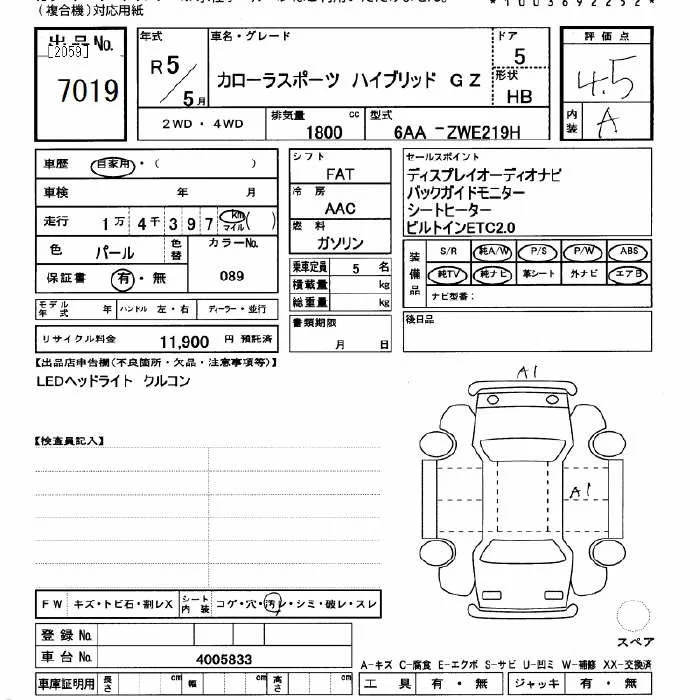 (複合機)対応用紙
*1003692252*
出品No.
[2059]
7019
年式
R5
5月
車名・グレード
カローラスポーツ ハイブリッド GZ
ドア
5
形状
HB
2WD・4WD
排気量
1800 cc
型式
6AA -ZWE219H
評価点
4.5
内装
A
車歴
自家用・( )
車検 年 月
走行 1万 4千 3 9 7 Km マイル ( )
色 パール
色替
カラーNo.
089
保証書 有・無
モデル年式 年
ハンドル 左・右
ディーラー・並行
リサイクル料金 11,900 円 預託済
シフト
FAT
冷房
AAC
燃料
ガソリン
乗車定員 5 名
積載量 kg
総重量 kg
書類期限
月 日
セールスポイント
ディスプレイオーディオナビ
バックガイドモニター
シートヒーター
ビルトインETC2.0
装備品
S/R 純A/W P/S P/W ABS
純TV 純ナビ 革シート 外ナビ エアB
ナビ型番:
後日品
【出品店申告欄(不良箇所・欠品・注意事項等)】
LEDヘッドライト クルコン
【検査員記入】
A1
A1
FW キズ・トビ石・割レX
シート内装 コゲ・穴・汚レ・シミ・破レ・スレ
登録No.
車台No. 4005833
スペア
A-キズ C-腐食 E-エクボ S-サビ U-凹ミ W-補修 XX-交換済
車庫証明用 長さ cm 幅 cm 高さ cm
工具 有・無 ジャッキ 有・無